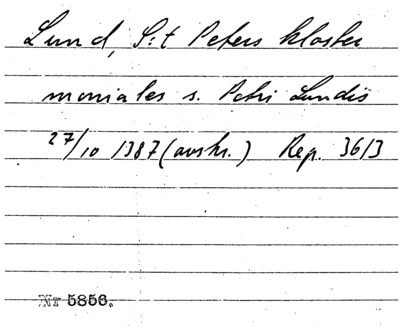 Lund, S:t Peters kloster
moniales s. Petri Lundis
27/10 1387 (avskr.) Rep. 3613
Nr 5856.